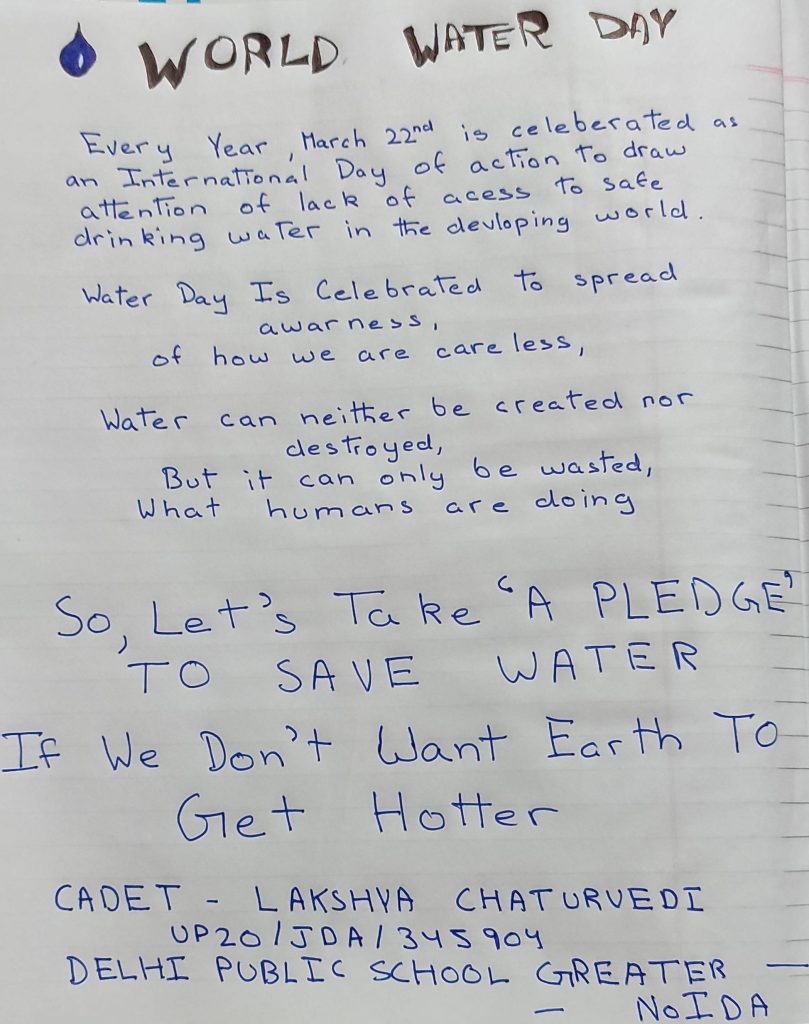 WORLD WATER DAY
Every Year, March 22nd is celeberated as
an International Day of action to draw
attention of lack of acess to safe
drinking water in the devloping world.
Water Day Is Celebrated to spread
awarness,
of how we are careless,
Water can neither be created nor
destroyed,
But it can only be wasted,
What humans are doing
So, Let's Take 'A PLEDGE'
TO SAVE WATER
If We Don't Want Earth To
Get Hotter
CADET - LAKSHYA CHATURVEDI
UP20/JDA/345904
DELHI PUBLIC SCHOOL GREATER —
— NOIDA